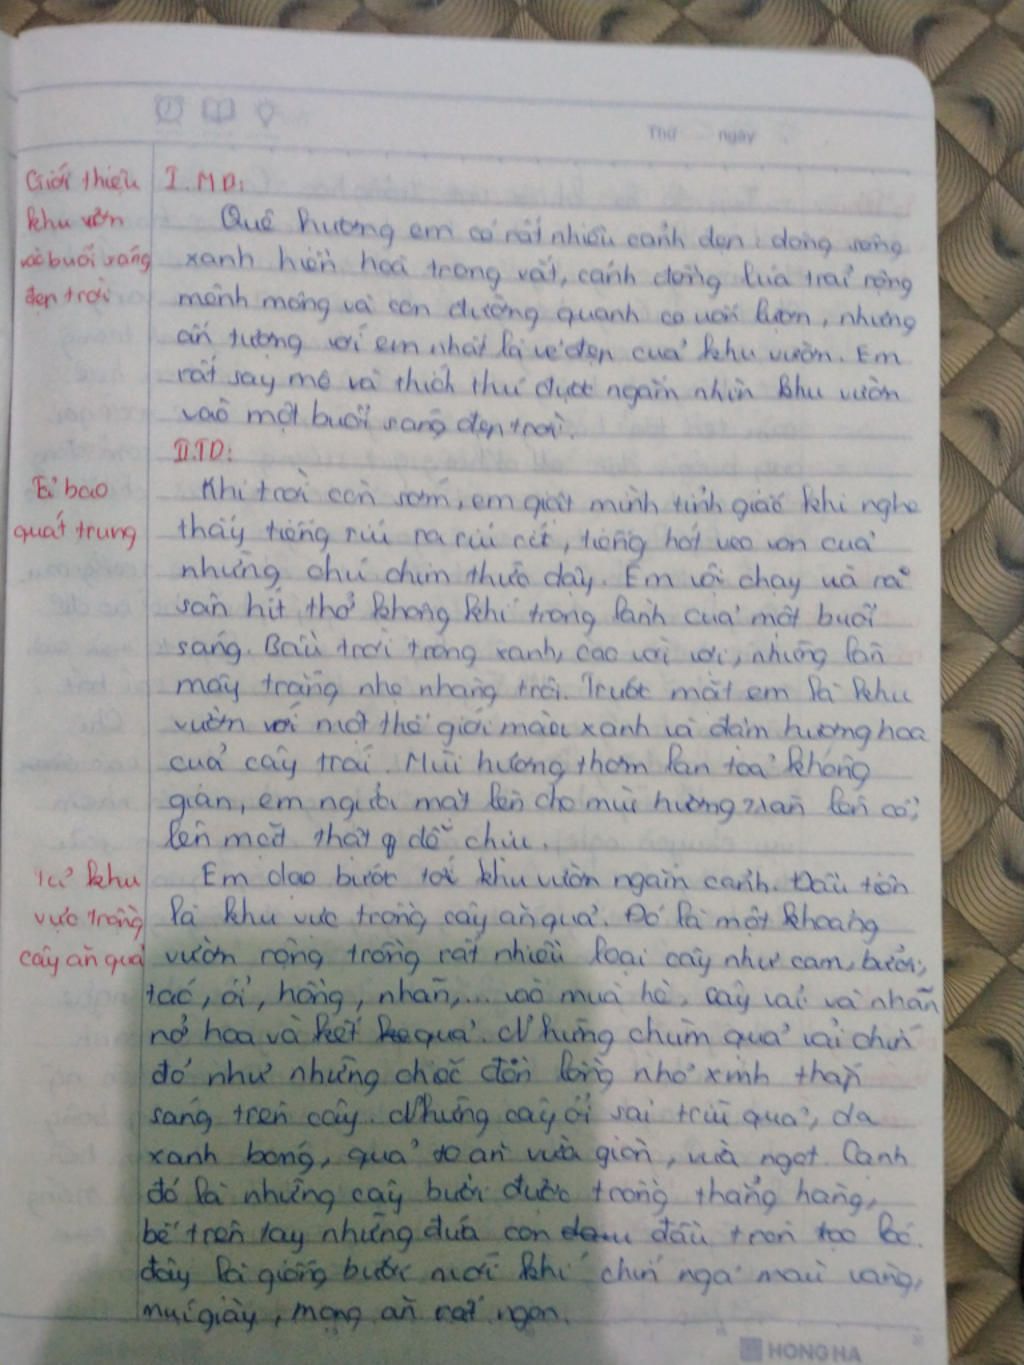 Thứ ngày
Giới thiệu
khu vườn
vào buổi sáng
đẹp trời
I. MB:
Quê hương em có rất nhiều cảnh đẹp: dòng sông
xanh hiền hoà trong vắt, cánh đồng lúa trải rộng
mênh mông và con đường quanh co uốn lượn, nhưng
ấn tượng với em nhất là vẻ đẹp của khu vườn. Em
rất say mê và thích thú được ngắm nhìn khu vườn
vào một buổi sáng đẹp trời.
II. TB:
Tả bao
quát trung
Khi trời còn sớm, em giật mình tỉnh giấc khi nghe
thấy tiếng ríu ra ríu rít, tiếng hót véo von của
những chú chim thức dậy. Em vội chạy và ra
sân hít thở không khí trong lành của một buổi
sáng. Bầu trời trong xanh, cao vời vợi, những làn
mây trắng nhẹ nhàng trôi. Trước mắt em là khu
vườn với một thế giới màu xanh và đậm hương hoa
của cây trái. Mùi hương thơm lan toả không
gian, em ngửa mặt lên cho mùi hương
lên mắt thật dễ chịu.
Tả khu
vực trồng
cây ăn quả
Em dạo bước tới khu vườn ngắm cảnh. Đầu tiên
là khu vực trồng cây ăn quả. Đó là một khoảng
vườn rộng trồng rất nhiều loại cây như cam, bưởi,
táo, ổi, hồng, nhãn,... vào mùa hè, cây vải và nhãn
nở hoa và kết quả. Những chùm quả vải chín
đỏ như những chiếc đèn lồng nhỏ xinh thắp
sáng trên cây. Những cây ổi sai trĩu quả, da
xanh bóng, quả to ăn vừa giòn, vừa ngọt. Cạnh
đó là những cây bưởi được trồng thẳng hàng,
bế trên tay những đứa con đầu tròn lóc.
đây là giống bưởi mới khi chín ngả màu vàng,
múi giày, mọng ăn rất ngon.
HONG HA